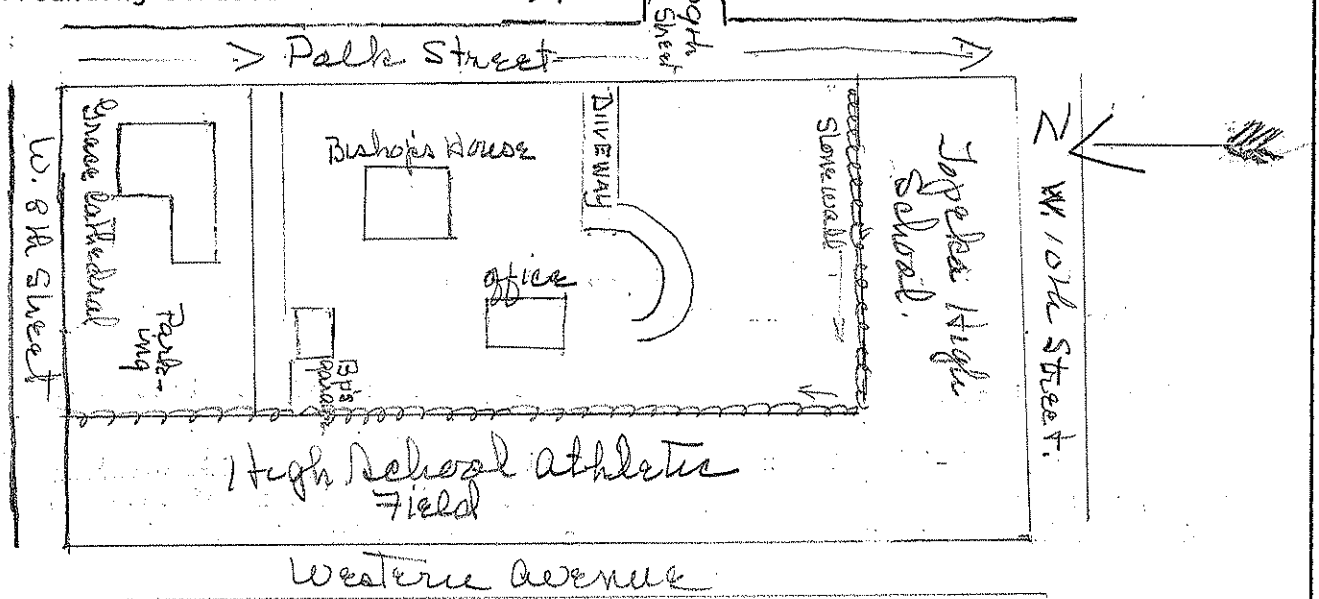 Polk Street
9th
Street
W. 8th Street
Grace Cathedral
Park-
ing
Bishop's House
DIIVEWAY
office
Bp's
garage
Stonewall
Topeka High
School.
N
W. 10th Street.
High School Athletic
Field
Western Avenue